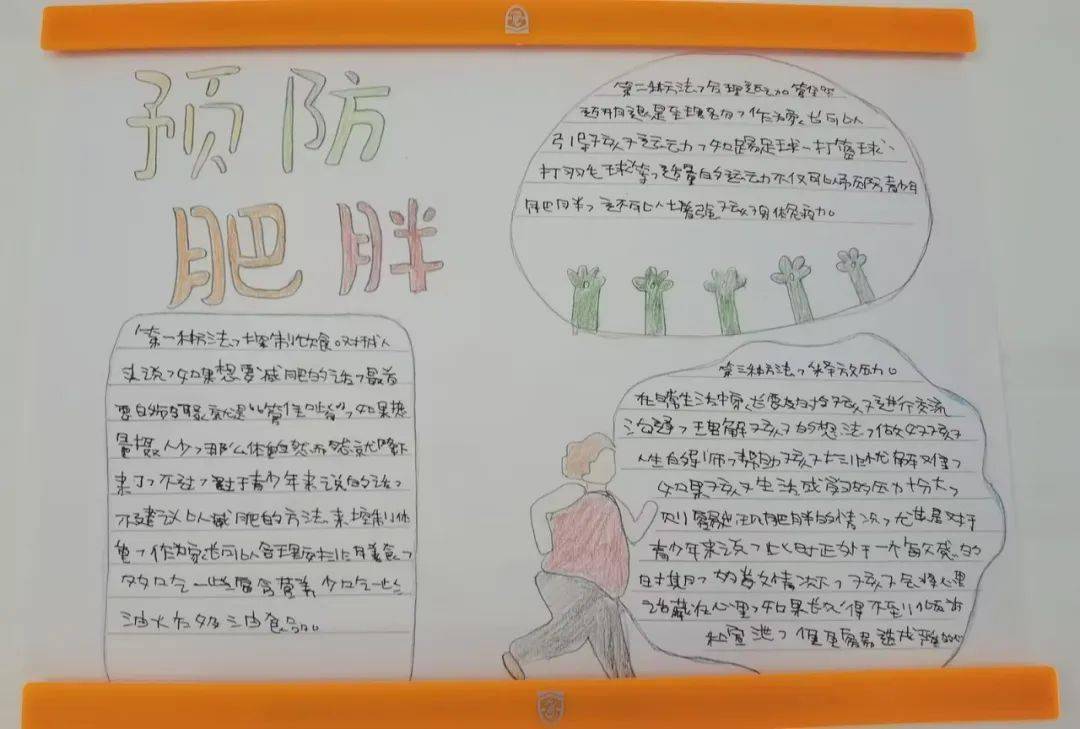 预防
肥胖
第一种方法,控制饮食。对成人
来说,如果想要减肥的话,最首
要的前提就是“管住嘴”,如果热
量摄入少,那么体重自然而然就降下
来了,不过,对于青少年来说的话,
不建议以减肥的方法来控制体
重,作为家长可以合理安排膳食,
多吃一些富含营养少吃一些
油大多油食品。
第二种方法,合理运动。管住嘴
迈开腿是至理名句,作为家长可以
引导孩子运动,如踢足球、打篮球、
打羽毛球等,适量的运动不仅可以预防青少年
肥胖,还可以增强孩子身体免疫力。
第三种方法,释放压力。
在日常生活中家长要及时给孩子进行交流
沟通,理解孩子的想法,做好孩子
人生的导师,帮助孩子排忧解难,
如果孩子生活或学习的压力大,
则容易出现肥胖的情况,尤其是对于
青少年来说,此时正处于一个敏感的
时期,如类似情况下,孩子会将心里
话藏在心里,如果长久得不到
和宣泄,很容易造成